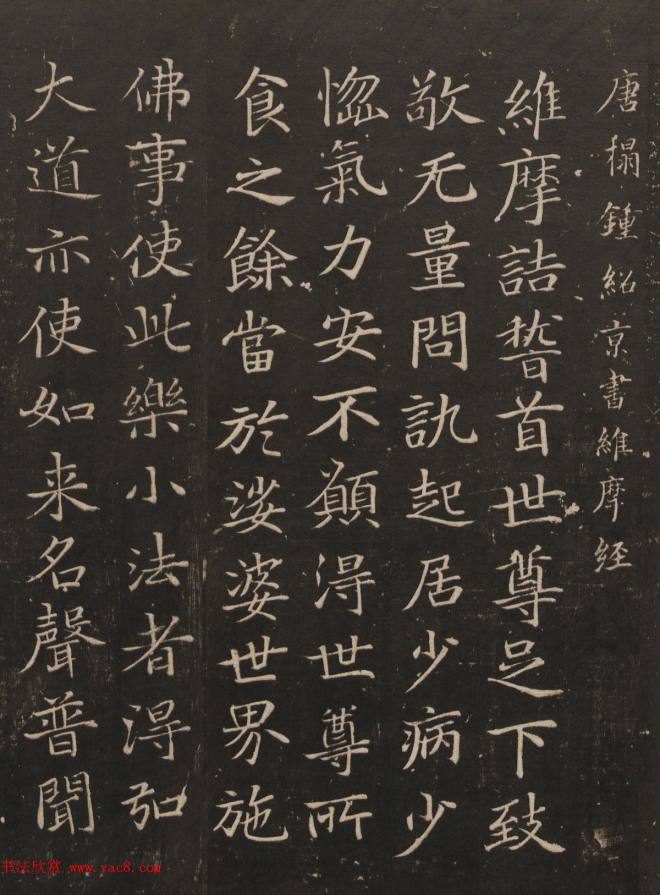 唐搨鍾紹京書維摩経
維摩詰誓首世尊足下致
敬无量問訊起居少病少
惱氣力安不願得世尊所
食之餘當於娑婆世界施
佛事使此樂小法者得弘
大道亦使如来名聲普聞
书法欣赏 www.yac8.com